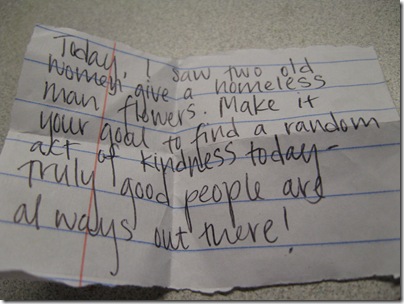 Today, I saw two old
women give a homeless
man flowers. Make it
your goal to find a random
act of kindness today-
Truly good people are
always out there!